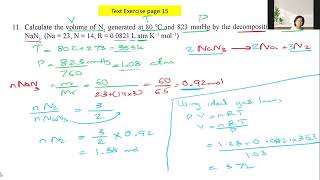 Text Exercise page 15
V T P
11. Calculate the volume of N₂ generated at 80 °C and 823 mmHg by the decomposition
NaN₃. (Na = 23, N = 14, R = 0.0821 L atm K⁻¹ mol⁻¹)
T = 80°C + 273 = 353K
2 NaN₃ → 2Na + 3N₂
P = 823 mmHg / 760 = 1.08 atm
n NaN₃ = m / Mr = 60 / 23+(14×3) = 60 / 65 = 0.92 mol
n N₂ / n NaN₃ = 3 / 2
n N₂ = 3 / 2 × 0.92
= 1.38 mol
Using ideal gas law,
PV = nRT
V = nRT / P
= 1.38 × 0.0821 × 353 / 1.08
= 37L